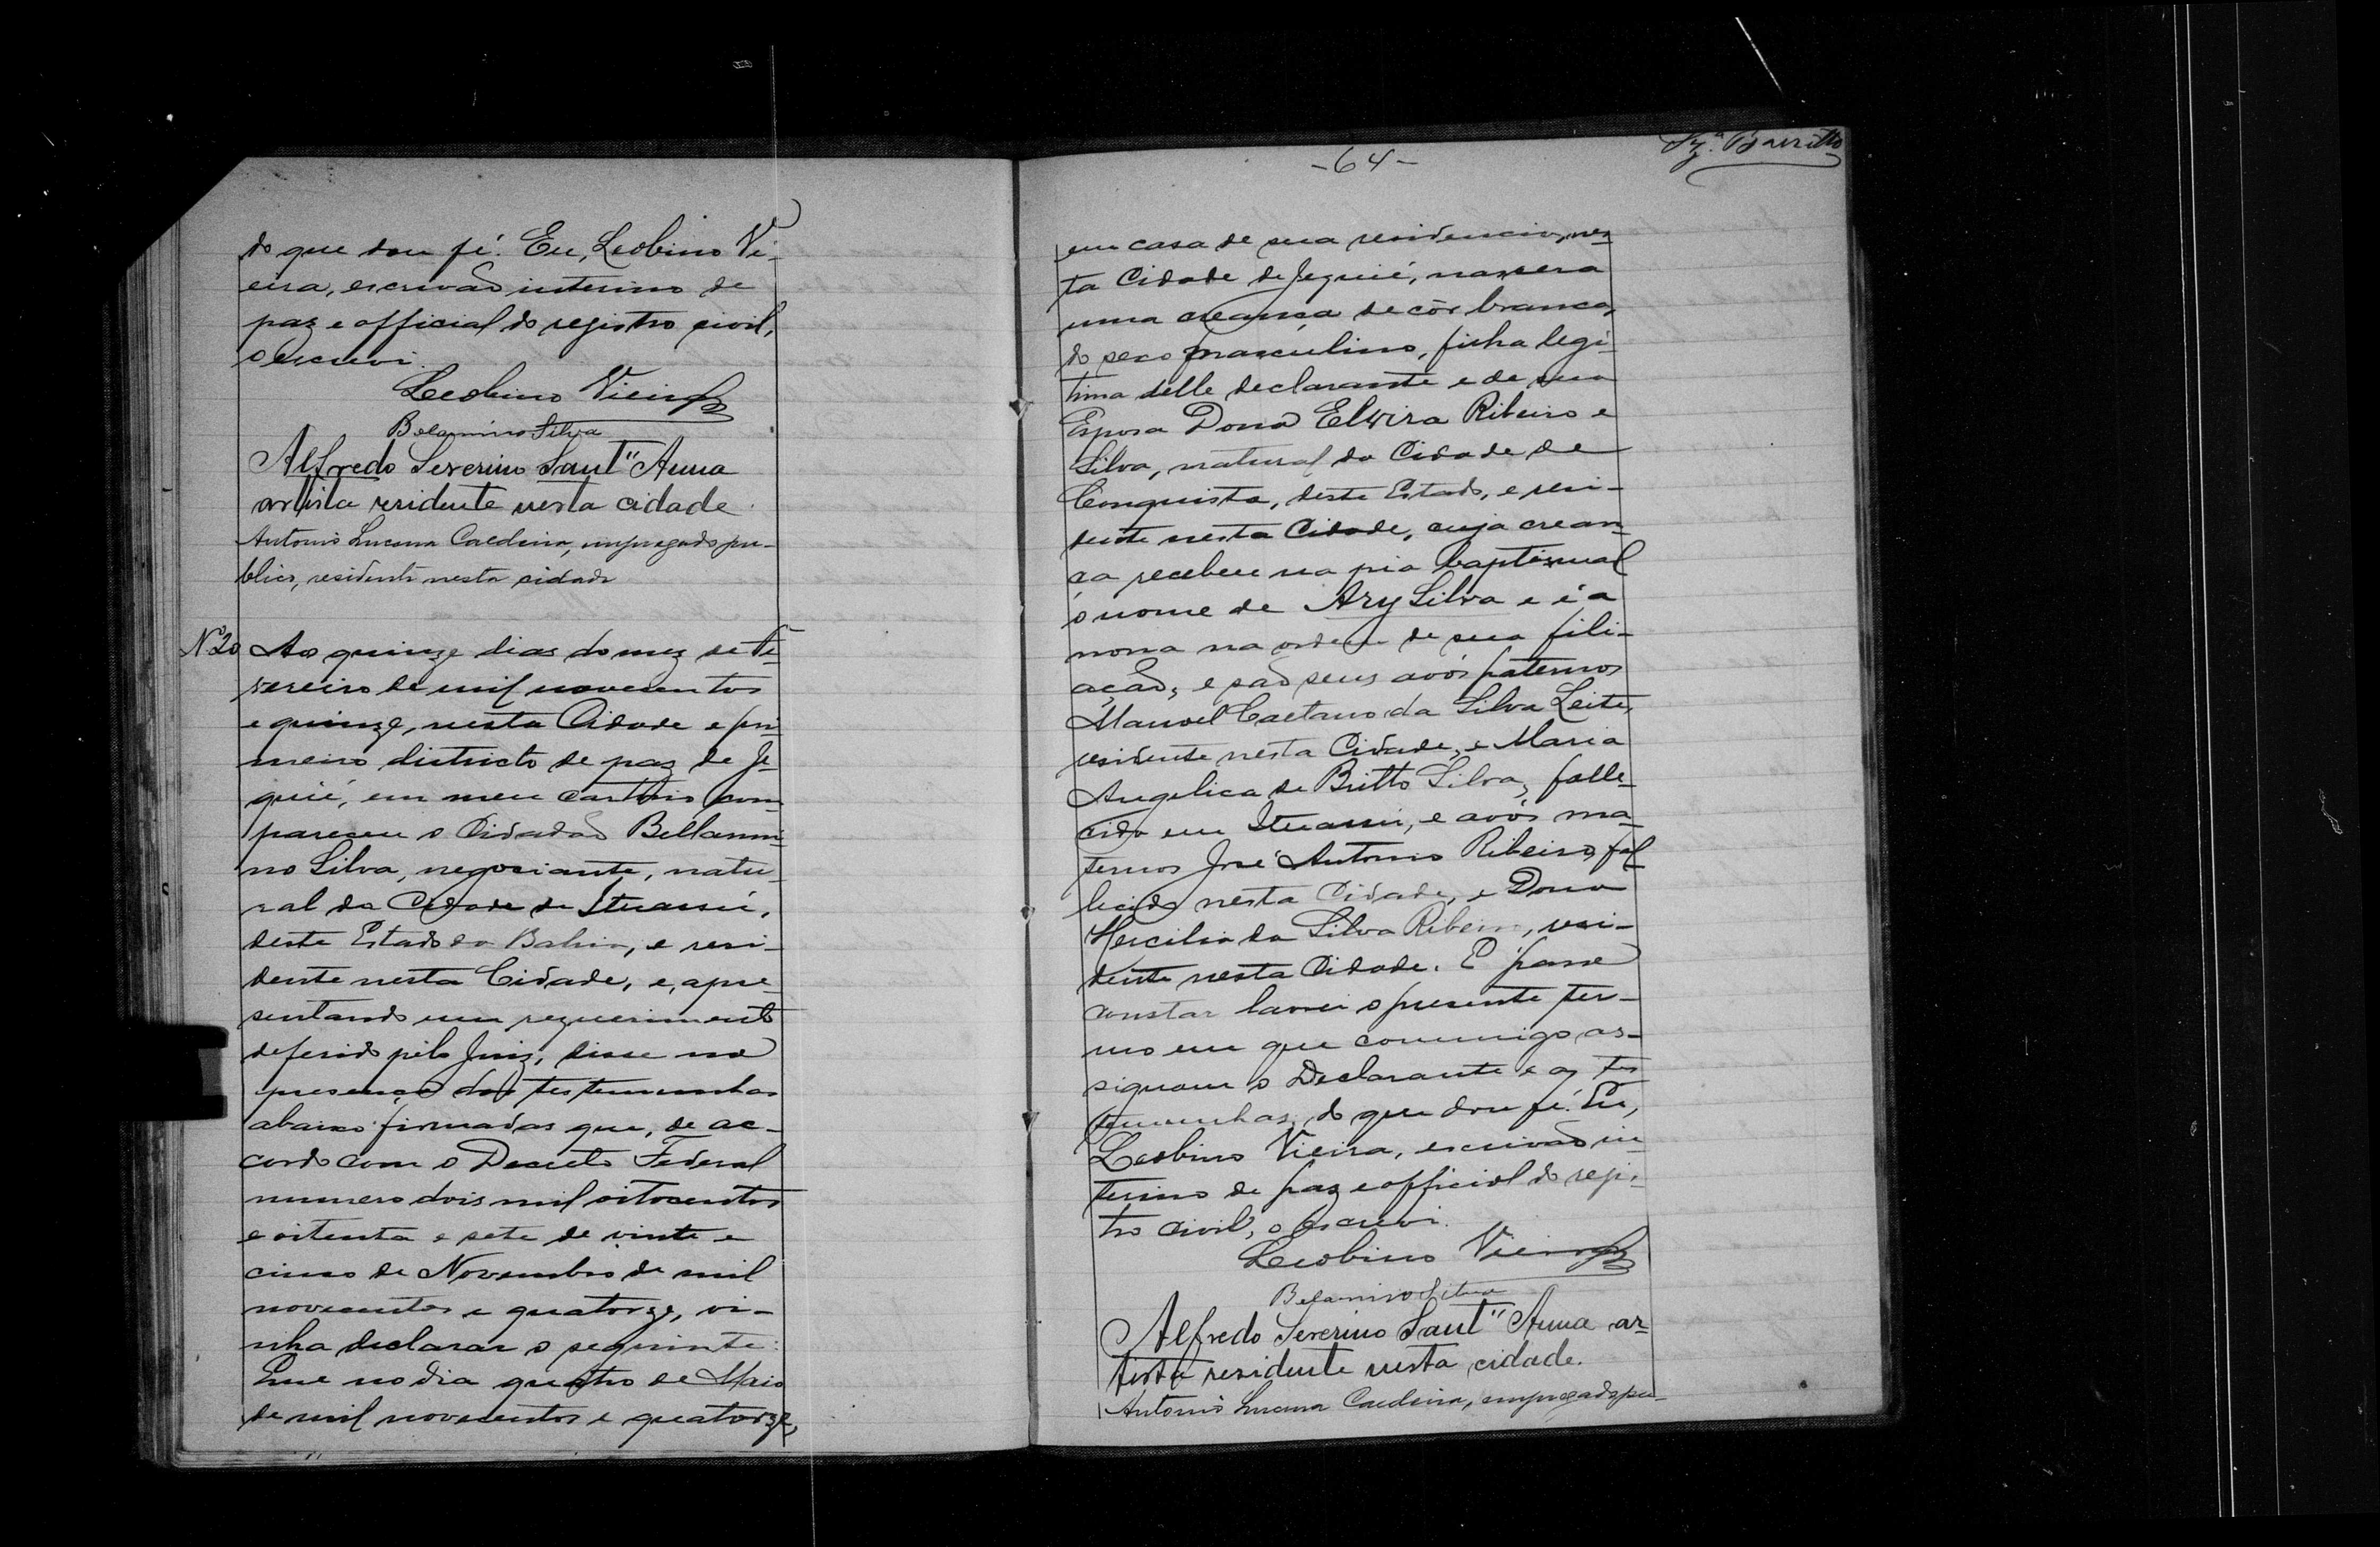 do que dou fé. Eu, Leobino Vi-
eira, escrivão interino de
paz e official do registro civil,
o escrevi.
Leobino Vieira
Belarmino Silva
Alfredo Severino Sant" Anna
artista residente nesta cidade.
Antonio Lucena Caldeira, empregado pu-
blico, residente nesta cidade
Nº 20 Aos quinze dias do mez de Fe-
vereiro de mil novecentos
e quinze, nesta Cidade e pri-
meiro districto de paz de Je-
quié, em meu cartorio com-
pareceu o Cidadão Bellarmi-
no Silva, negociante, natu-
ral da Cidade de Ituassú,
deste Estado da Bahia, e resi-
dente nesta Cidade, e, apre-
sentando um requerimento
deferido pelo Juiz, disse na
presença das testemunhas
abaixo firmadas que, de ac-
cordo com o Decreto Federal
numero dois mil oitocentos
e oitenta e sete de vinte e
cinco de Novembro de mil
novecentos e quatorze, vi-
nha declarar o seguinte:
Que no dia quatro de Maio
de mil novecentos e quatorze,
-64-
Barretto
em casa de sua residencia, nes-
ta Cidade de Jequié, nascera
uma creança de côr branca,
do sexo masculino, filha legi-
tima delle declarante e de sua
Esposa Dona Elvira Ribeiro e
Silva, natural da Cidade de
Conquista, deste Estado, e resi-
dente nesta Cidade, cuja crean-
ça recebeu na pia baptismal
o nome de Ary Silva e é a
nona na ordem de sua fili-
ação, e são seus avós paternos
Manoel Caetano da Silva Leite,
residente nesta Cidade, e Maria
Angelica de Britto Silva, falle-
cida em Ituassú, e avós ma-
ternos José Antonio Ribeiro, fal-
lecido nesta Cidade, e Dona
Hercilia da Silva Ribeiro, resi-
dente nesta Cidade. E para
constar lavrei o presente ter-
mo em que commigo as-
signam o Declarante e as tes-
temunhas, do que dou fé. Eu,
Leobino Vieira, escrivão in-
terino de paz e official do regis-
tro civil, o escrevi.
Leobino Vieira
Belarmino Silva
Alfredo Severino Sant" Anna ar-
tista residente nesta cidade.
Antonio Lucena Caldeira, empregado pu-